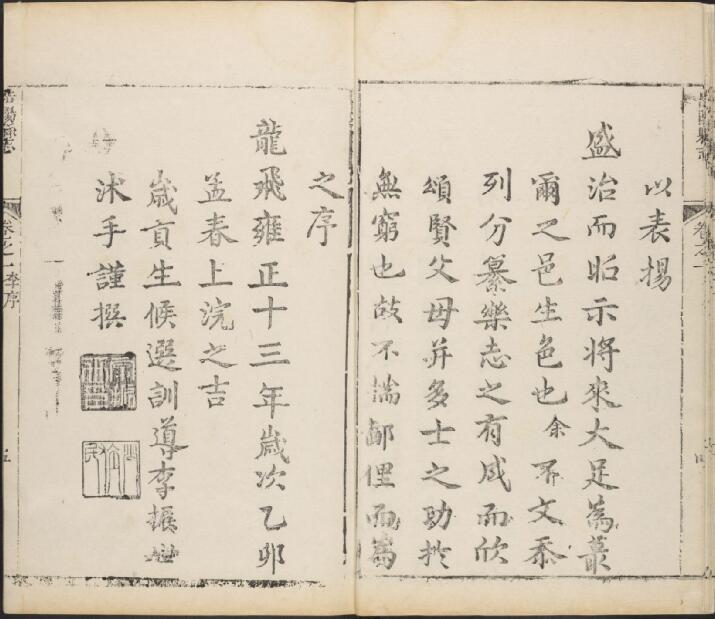 以表揚
盛治而昭示將來大足為叢
爾之邑生色也余不文忝
列分纂樂志之有成而欣
頌賢父母并多士之助於
無窮也故不揣鄙俚而為
之序
龍飛雍正十三年歲次乙卯
孟春上浣之吉
歲貢生候選訓導李振世
沐手謹撰
卷之一
李序
五